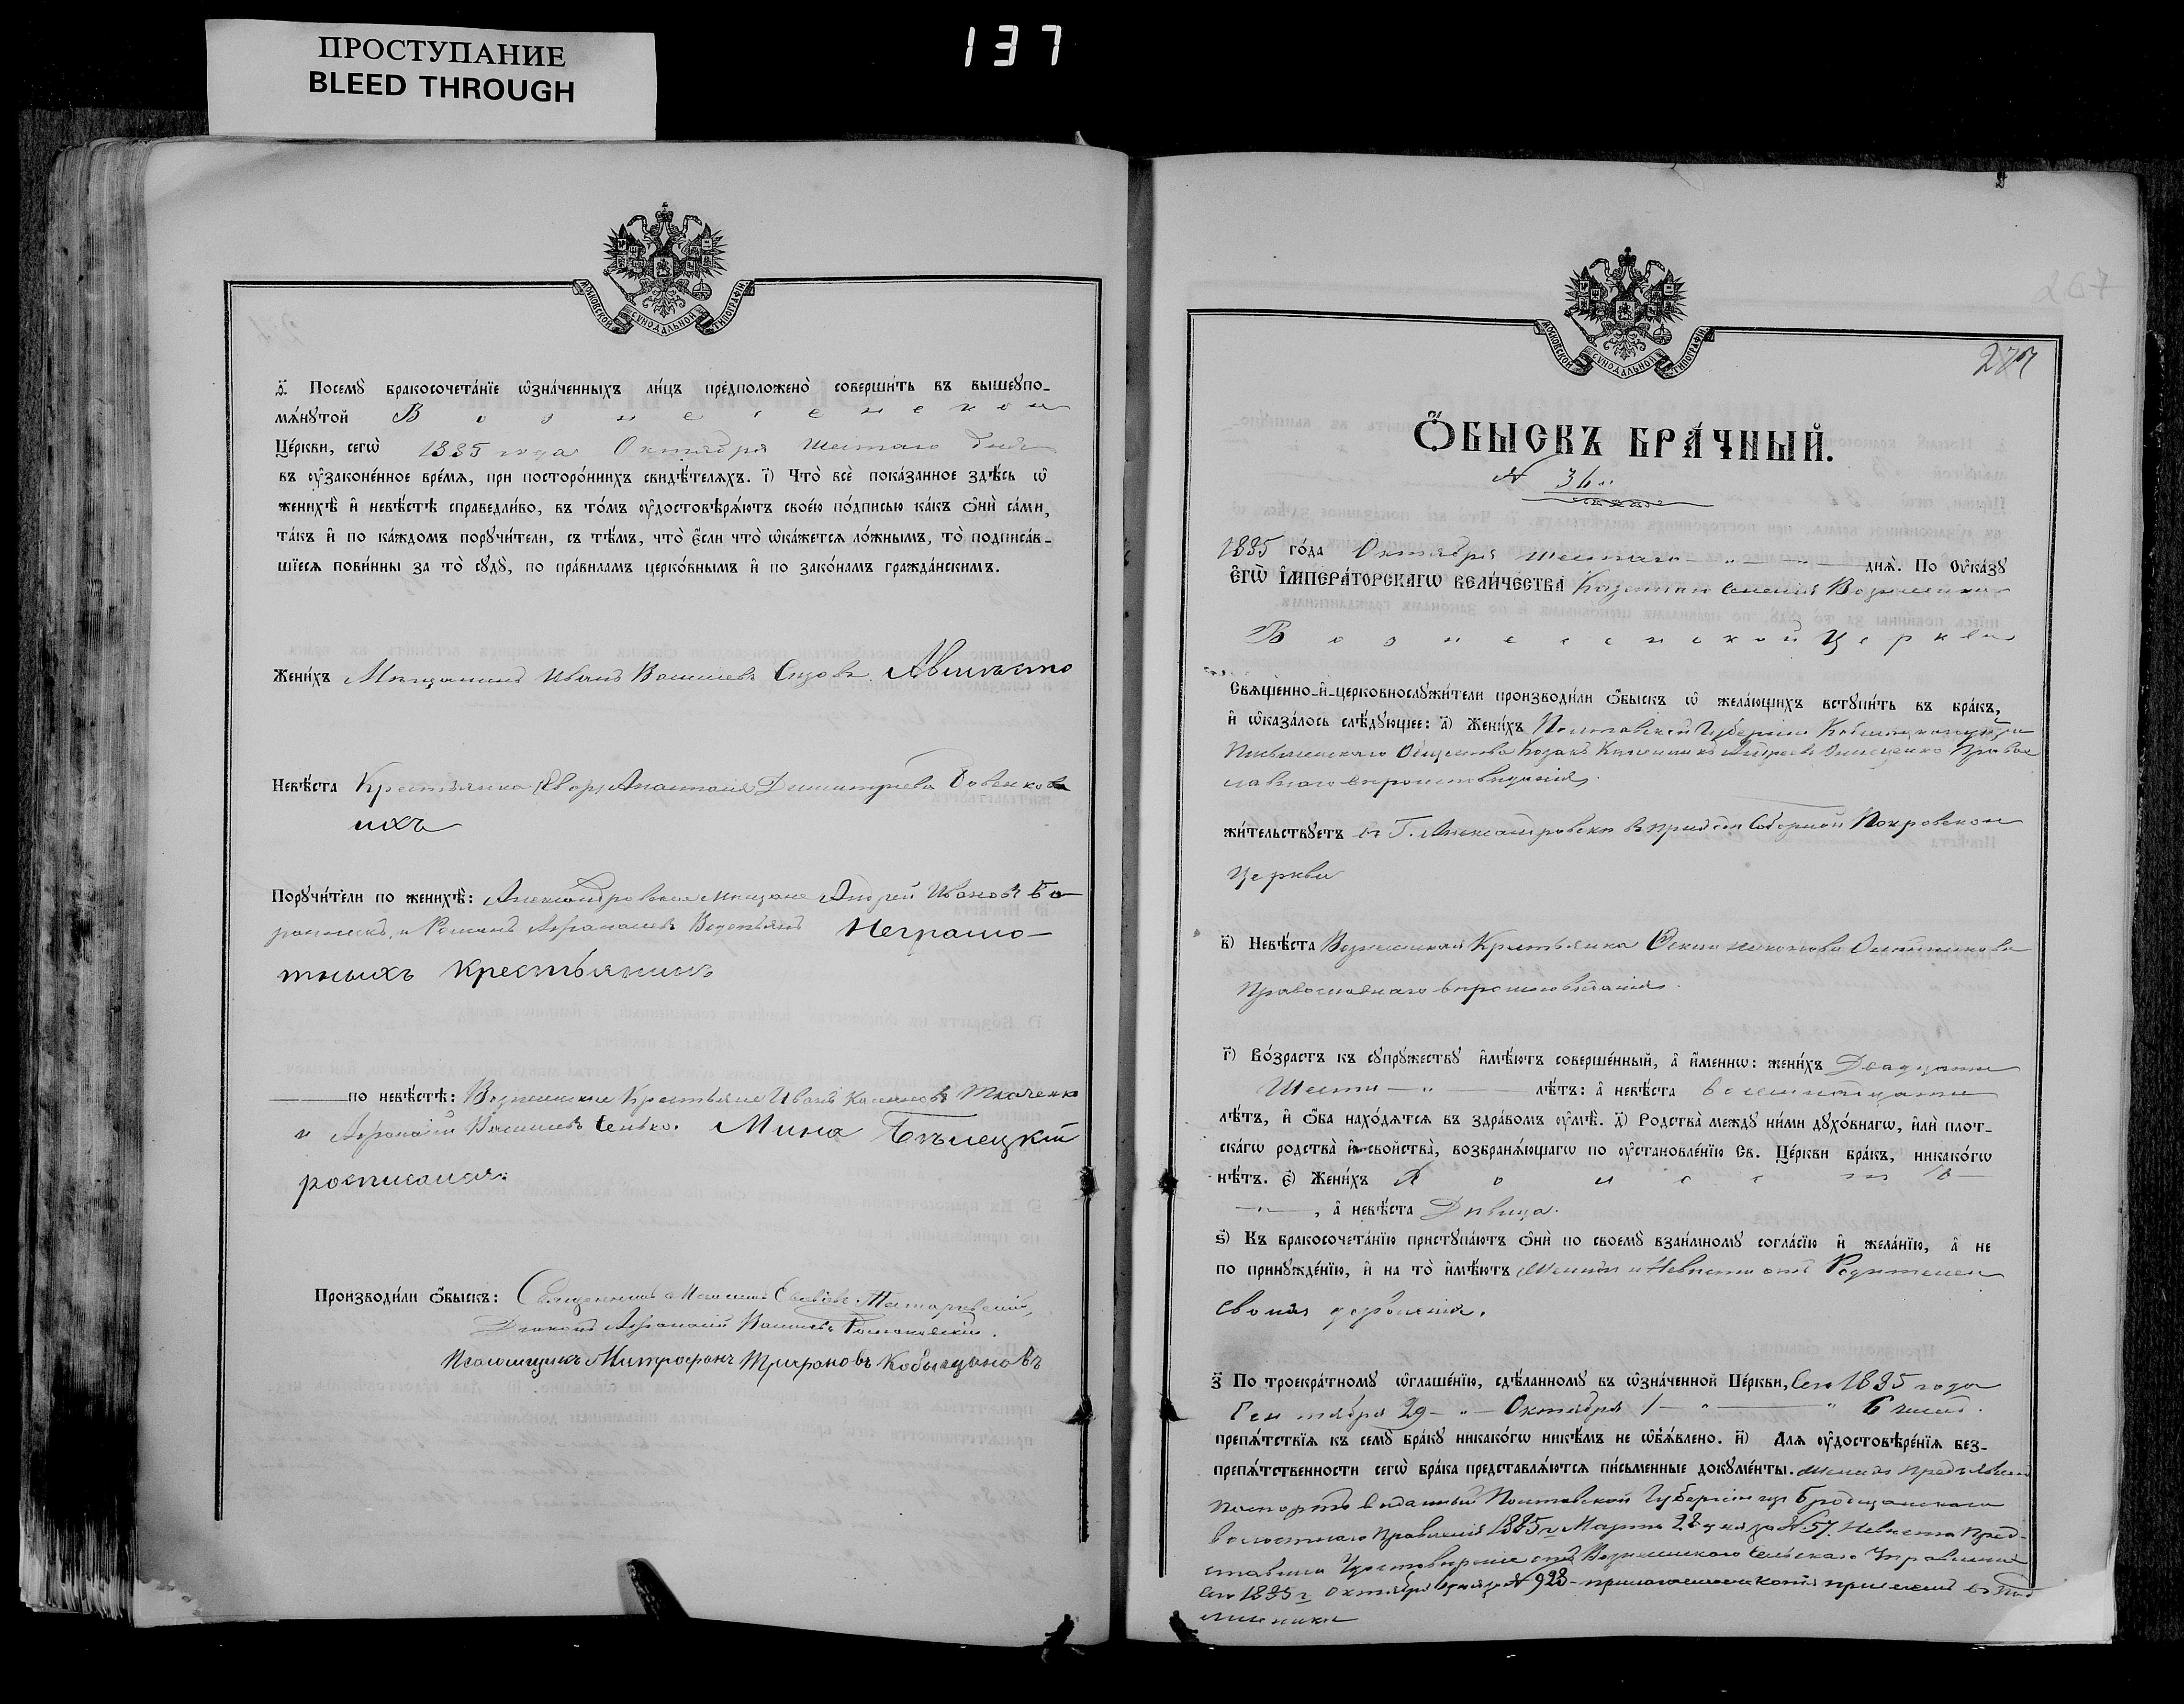 ПРОСТУПАНИЕ
BLEED THROUGH
137
МОСКОВСКОЙ СУНОДАЛЬНОЙ ТИПОГРАФІИ
д҃ Посемꙋ̀ бракосочета́нїе ѡ҆зна́ченныхъ ли́цъ предположено̀ соверши́ть въ вышеꙋпо-
мѧ́нꙋтой Вознесенской
Це́ркви, сегѡ̀ 1885 года Октября шестаго дня
въ ᲂу҆зако́ненное вре́мѧ, при посторо́ннихъ свидѣ́телѧхъ. і҃) Что̀ всѐ пока́занное здѣ́сь ѡ҆
женихѣ̀ и҆ невѣ́стѣ справедли́во, въ то́мъ ᲂу҆достовѣрѧ́ютъ свое́ю по́дписью ка́къ ѻ҆нѝ са́ми,
та́къ и҆ по ка́ждомъ порꙋчи́тели, съ тѣ́мъ, что̀ є҆́сли что̀ ѡ҆ка́жетсѧ ло́жнымъ, то̀ подписа́в-
шїесѧ пови́нны за то̀ сꙋдꙋ̀, по пра́виламъ церко́внымъ и҆ по зако́намъ гражда́нскимъ.
Жени́хъ Мѣщанинъ Иванъ Васильевъ
Невѣ́ста Крестьянка Анастасія Димитріева
ихъ
Порꙋчи́тели по женихѣ̀: Александровскіе мѣщане Андрей Ивановъ
и Романъ Афанасіевъ Неграмо-
тныхъ крестьянинъ
по невѣ́стѣ: Вознесенскіе Крестьяне Иванъ Ткаченко
и Афанасій Васильевъ Мина Бѣлецкій
росписался.
Производи́ли ѻ҆́быскъ: Священникъ
Діаконъ Афанасій Васильевъ
Псаломщикъ Митрофанъ Трифоновъ Кобыщановъ
267
277
МОСКОВСКОЙ СУНОДАЛЬНОЙ ТИПОГРАФІИ
Ѻ҆́БЫСКЪ БРА́ЧНЫЙ.
№ 36.
1885 го́да Октября шестаго днѧ̀. По Оу҆ка́зꙋ
Є҆ГѠ̀ І҆МПЕРА́ТОРСКАГѠ ВЕЛИ́ЧЕСТВА
Вознесенской Церкви
Свѧще́нно-и҆-церковнослꙋжи́тели производи́ли ѻ҆́быскъ ѡ҆ жела́ющихъ встꙋпи́ть въ бра́къ,
и҆ ѡ҆каза́лось слѣ́дꙋющее: а҃) Жени́хъ Полтавской Губерніи
Общества Козакъ Андреевъ Онищенко Право
славнаго вѣроисповѣданія.
жи́тельствꙋетъ въ Г. Александровскѣ въ приходѣ Соборной Покровской
Церкви
в҃) Невѣ́ста Вознесенская Крестьянка
Православнаго вѣроисповѣданія.
г҃) Во́зрастъ къ сꙋпрꙋ́жествꙋ и҆мѣ́ютъ соверше́нный, а҆ и҆́меннѡ: жени́хъ Двадцати
Шести лѣ́тъ: а҆ невѣ́ста восемнатцати
лѣ́тъ, и҆ ѻ҆́ба нахо́дѧтсѧ въ здра́вомъ ᲂу҆мѣ̀. д҃) Родства̀ междꙋ̀ ни́ми дꙋхо́внагѡ, и҆лѝ плот-
ска́гѡ родства̀ и҆ свойства̀, возбранѧ́ющагѡ по ᲂу҆становле́нїю Св. Це́ркви бра́къ, никако́гѡ
нѣ́тъ. є҃) Жени́хъ Холостъ
, а҆ невѣ́ста Дѣвица.
ѕ҃) Къ бракосочета́нїю пристꙋпа́ютъ ѻ҆нѝ по своемꙋ̀ взаи́мномꙋ согла́сїю и҆ жела́нїю, а҆ не
по принꙋжде́нїю, и҆ на то̀ и҆мѣ́ютъ Женихъ и Невѣста отъ Родителей
своихъ дозволенія.
з҃ По троекра́тномꙋ ѡ҆глаше́нїю, сдѣ́ланномꙋ въ ѡ҆зна́ченной Це́ркви, Сего 1885 года
Сентября 29 Октября 1 6 чиселъ.
препѧ́тствїѧ къ семꙋ̀ бра́кꙋ никако́гѡ никѣ́мъ не ѡ҆б̾ѧ́влено. и҃) Длѧ ᲂу҆достовѣре́нїѧ без-
препѧ́тственности сегѡ̀ бра́ка представлѧ́ютсѧ пи́сьменные докꙋме́нты. Женихъ предъявилъ
паспортъ выданный Полтавской Губерніи
волостнаго Правленія 1885 г. Марта 28 дня за № 57. Невѣста пред-
ставила Удостовѣреніе отъ Вознесенскаго Сельскаго Управленія
сего 1885 г. Октября № 928